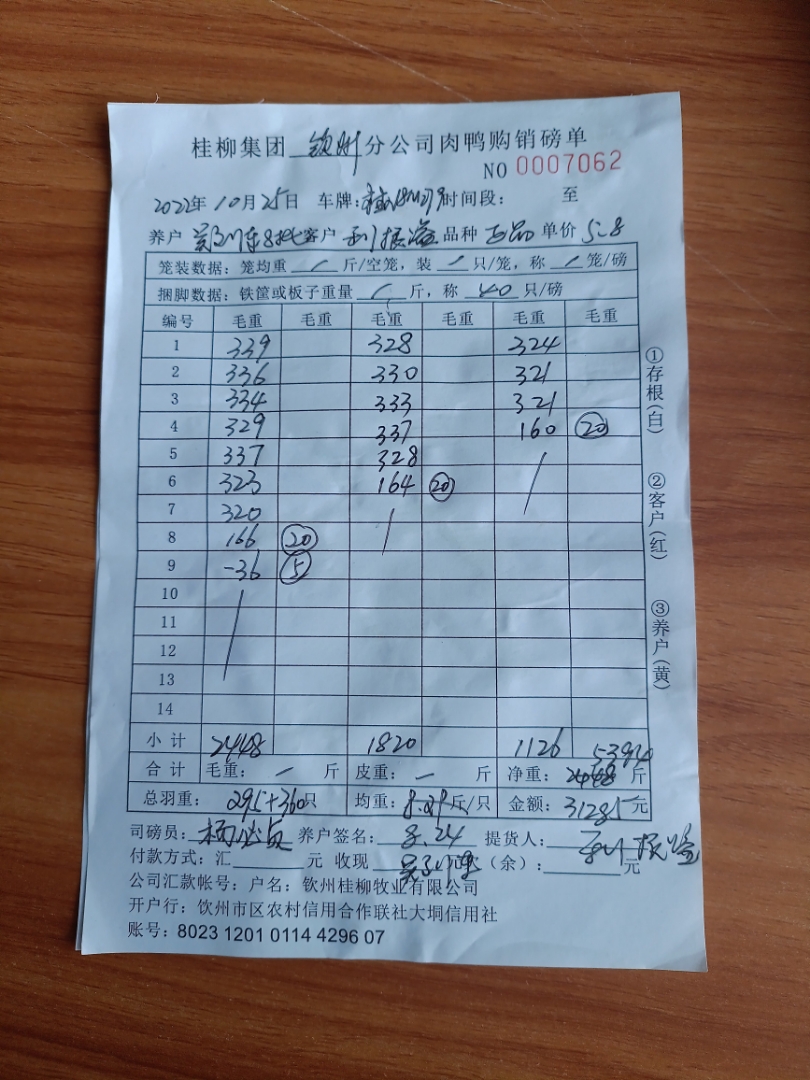 桂柳集团 钦州 分公司肉鸭购销磅单
NO 0007062
2022年10月25日 车牌: 时间段: 至
养户 客户 刘振溢 品种 单价 5.8
笼装数据: 笼均重 / 斤/空笼, 装 / 只/笼, 称 / 笼/磅
捆脚数据: 铁筐或板子重量 / 斤, 称 40 只/磅
编号 毛重 毛重 毛重 毛重 毛重 毛重
1 339 328 324
2 336 330 321
3 334 333 321
4 329 337 160 20
5 337 328
6 323 164 20
7 320
8 166 20
9 -36 5
10
11
12
13
14
小计 2448 1820 1126
合计 毛重: 斤 皮重: 斤 净重: 斤
总羽重: 295+360只 均重: 8.29斤/只 金额: 31285元
司磅员: 养户签名: 8.24 提货人:
付款方式: 汇 元 收现 (余): 元
公司汇款帐号: 户名: 钦州桂柳牧业有限公司
开户行: 钦州市区农村信用合作联社大垌信用社
账号: 8023 1201 0114 4296 07
①存根(白)
②客户(红)
③养户(黄)